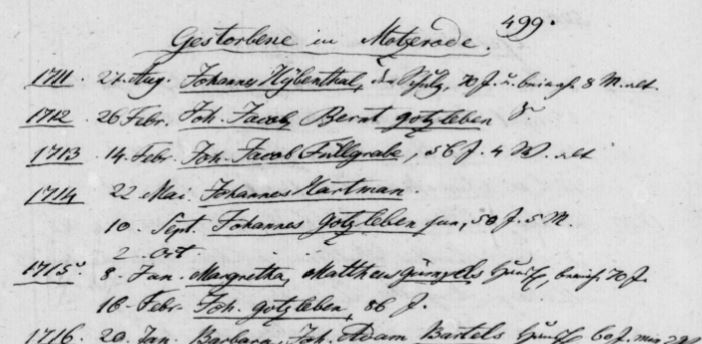 499.
Gestorbene in Motzerode.
1711. 27. Aug. Johannes Hybenthal, der Schulz, 70 J. u. beinah 8 M. alt.
1712. 26 Febr. Joh. Jacob Bernt gotzleben
1713. 14. Febr. Joh. Jacob Füllgrabe, 56 J. 4 W. alt
1714 22 Mai. Johannes Hartman.
10. Sept. Johannes gotzleben jun, 50 J. 5 M.
2. Oct
1715. 8. Jan. Margretha, Matthews 70 J.
16. Febr. Joh. gotzleben, 86 J.
1716. 20. Jan. Barbara, Joh. Adam Bartels 60 J.